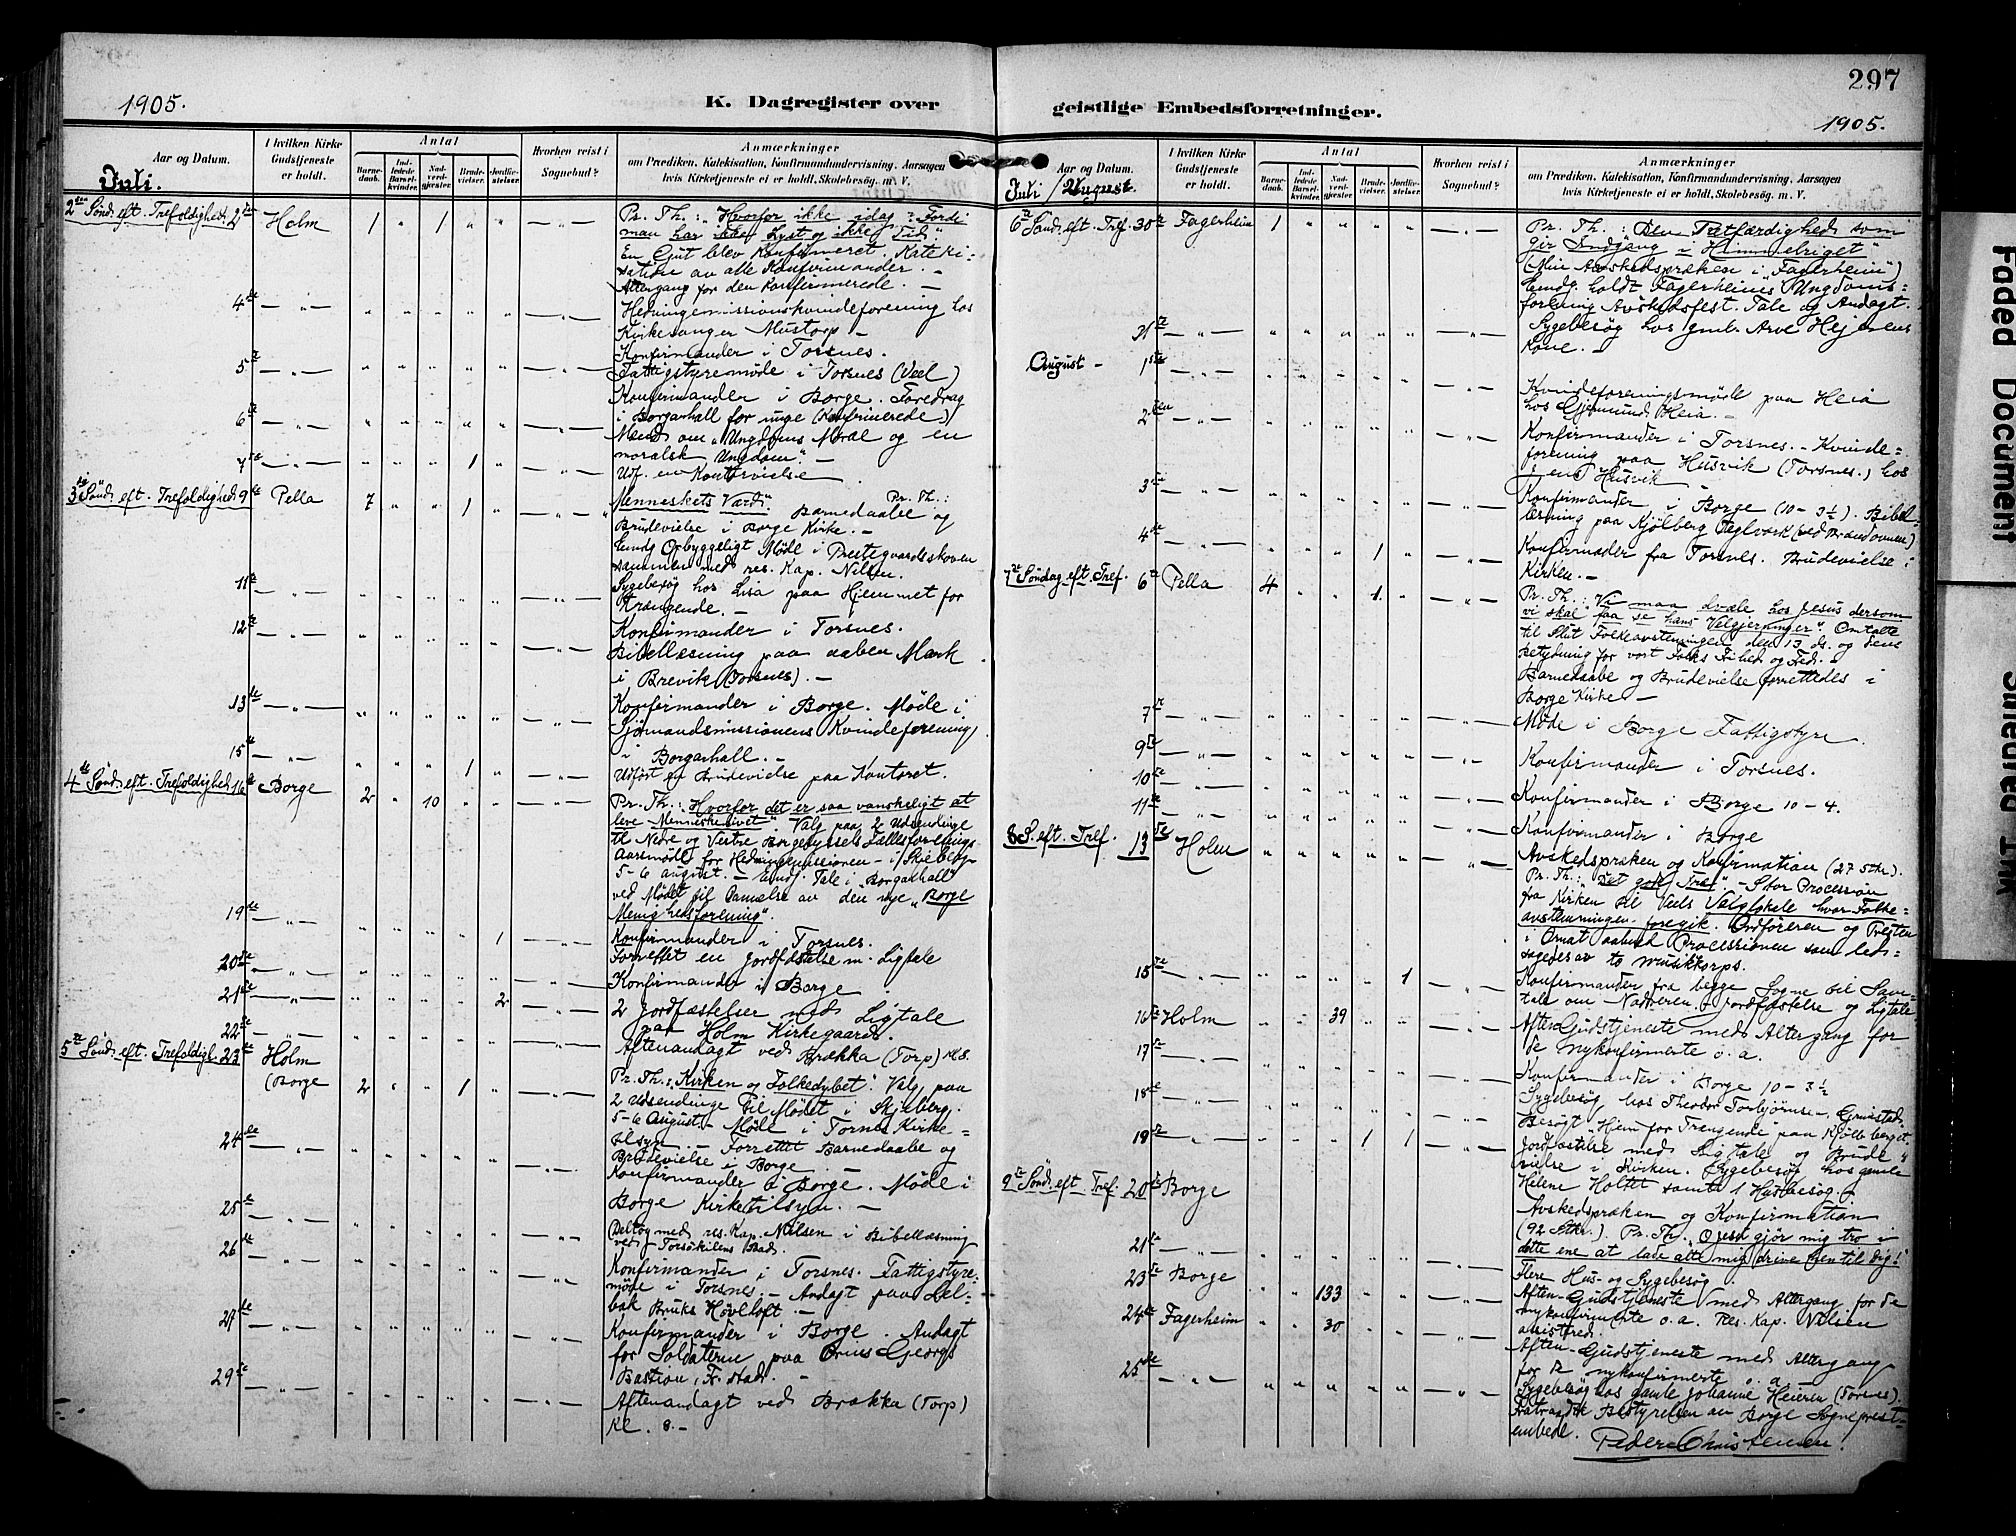 297
1905.
K. Dagregister over
Aar og Datum.
I hvilken Kirke Gudstjeneste er holdt.
Antal
Barnedaab.
Indledede Barselkvinder.
Nadverdgjester.
Brudevielser.
Jordfæstelser.
Hvorhen reist i Sognebud?
Anmærkninger
om Prædiken, Katekisation, Konfirmandundervisning, Aarsagen
hvis Kirketjeneste ei er holdt, Skolebesøg. m. V.
Juli.
2den Sønd. eft. Trefoldighed 2den Holm 1 " 1 " " — " —
Pr. Th.: "Hvorfor ikke idag: Fordi
man har ikke Lyst og ikke Tid"
En Gut blev Konfirmeret. Kateki-
sation av alle Konfirmander. —
Altergang for den Konfirmerede. —
4de — " —
Hedningemissionskvindeforening hos
Kirkesanger Mustorp —
Konfirmander i Torsnes.
5te — " —
Fattigstyremøde i Torsnes (Veel)
Konfirmander i Borge. Foredrag
6te — " —
i Borgarhall for unge (Konfirmerede)
Mænd om "Ungdoms Moral og en
moralsk Ungdom". —
7de — " — 1
Udf. en Kontorvielse
3die Sønd. eft. Trefoldighed 9de Pella 7 " " 1 " — " —
"Menneskets Værd". Pr. Th.:
Barnedaabe og
Brudevielse i Borge Kirke. —
Eundg Opbyggeligt Møde i Prestegaardsskoven
sammen med res. Kap. Nilsen.
11te — " —
Sygebesøg hos Lisa paa Hjemmet for
Trængende. —
12te — " —
Konfirmander i Torsnes.
Bibellæsning paa aaben Mark
i Brevik (Torsnes). —
13de — " —
Konfirmander i Borge. Møde i
Sjømandsmissionens Kvindeforening
i Borgarhall. —
15de — " — 1
Udført en Brudevielse paa Kontoret.
4de Sønd. eft. Trefoldighed 16de Borge 2 " 10 " " — " —
Pr. Th.: "Hvorfor det er saa vanskeligt at
leve Menneskelivet" Valg paa 2 Udsendinge
til Nedre og Vestre Borgesyssels Fællesforenings
Aarsmøde for Hedningemissionen — i Skjeberg
5-6 august. — Eundg. Tale i "Borgarhall"
ved Mødet til Dannelse av den nye "Borge
Menighedsforening".
19de — " — 1
Konfirmander i Torsnes.
Forrettet en Jordfæstelse m. Ligtale
20de — " —
Konfirmander i Borge
21de — " — 2
2 Jordfæstelser med Ligtale
paa Holm Kirkegaard.
22de — " —
Aftenandagt ved Brækka (Torp) Kl. 8.
5te Sønd. eft. Trefoldigh. 23de Holm
(Borge 2 " " 1 " — " —
Pr. Th.: "Kirken og Folkedybet". Valg paa
2 Udsendinge til Mødet i Skjeberg
5-6 August. — Møde i Torsnes Kirke=
tilsyn. — Forrettet Barnedaabe og
Brudevielse i Borge. —
24de — " —
Konfirmander i Borge. Møde i
Borge Kirketilsyn. —
25de — " —
Deltog med res. Kap. Nilsen i Bibellæsning
ved Torsøkilens Bad.
26de — " —
Konfirmander i Torsnes. Fattigstyre=
møde i Torsnes. — Andagt paa Sel-
bak Bruks Høvleloft. —
27de — " —
Konfirmander i Borge. Andagt
for Soldaterne paa Prins Georgs
Bastion, Fr.stad. —
29de — " —
Aftenandagt ved Brækka (Torp)
Kl. 8. —
geistlige Embedsforretninger.
1905.
Aar og Datum.
I hvilken Kirke Gudstjeneste er holdt.
Antal
Barnedaab.
Indledede Barselkvinder.
Nadverdgjester.
Brudevielser.
Jordfæstelser.
Hvorhen reist i Sognebud?
Anmærkninger
om Prædiken, Katekisation, Konfirmandundervisning, Aarsagen
hvis Kirketjeneste ei er holdt, Skolebesøg. m. V.
Juli / August.
6te Sønd. eft. Tref. 30te Fagerheim 1 " " " " — " —
Pr. Th.: "Den Retfærdighed som
gir Indgang i Himmelriget"
(Min Avskedspræken i "Fagerheim")
Eundg. holdt Fagerheims Ungdoms=
forening Avskedsfest. Tale og Andagt.
31te — " —
Sygebesøg hos gml. Arve Hejerens
Kone. —
August — 1ste — " —
Kvindeforeningsmøde paa Heia
hos Gjermund Heia. —
2den — " —
Konfirmander i Torsnes. — Kvinde=
forening paa Husvik (Torsnes.) hos
Jens Husvik
3die — " —
Konfirmander i Borge (10 - 3½). Bibel=
læsning paa Kjølberg Teglverk (ved Brændovnene)
4de — " — 1
Konfirmander fra Torsnes. Brudevielse i
Kirken. —
7de Søndag eft. Tref. 6te Pella 4 " " 1 " — " —
Pr. Th.: "Vi maa dvæle hos Jesus dersom
vi skal faa se hans Velgjerninger". Omtalte
til Slut Folkeavstemningen den 13 ds. og dens
Betydning for vort Folks Frihed og Fred. —
Barnedaabe og Brudevielse forrettedes i
Borge Kirke —
7de — " —
Møde i Borge Fattigstyre.
9de — " —
Konfirmander i Torsnes.
10de — " —
Konfirmander i Borge 10 - 4.
11te — " —
Konfirmander i Borge
8 S. eft. Tref. 13de Holm
Avskedspræken og Konfirmation (27 Stkr.).
Pr. Th.: "Det gode Træ" — Stor Procession
fra Kirken til Veels Valglokale hvor Folke=
avstemningen foregik. Ordføreren og Presten
i Ornat aabned Processionen som led=
sagedes av to musikkorps.
15de — " — 1
Konfirmander fra begge Sogne til Sam=
tale om Nadveren. Jordfæstelse og Ligtale
16de Holm 39
Aften Gudstjeneste med Altergang for
de nykonfirmerte o. a.
17de — " —
Konfirmander i Borge 10 - 3½
18de — " —
Sygebesøg hos Theodor Torbjørnsen, Grimstad.
Besøgt "Hjem for Trængende" paa Kjølberget.
19de — " — 1 1
Jordfæstelse med Ligtale og Brude=
vielse i Kirken. Sygebesøg hos gamle
Helene Holtet samt 1 Husbesøg. —
9de Sønd. eft. Tref. 20de Borge
Avskedspræken og Konfirmation
(92 Stkr.). Pr. Th. "O Jesu gjør mig tro i
dette ene at lade alt mig drive hen til dig!"
21de — " —
Flere Hus- og Sygebesøg
23de Borge 133
Aften-Gudstjeneste med Altergang for de
nykonfirmerte o. a. Res. Kap. Nilsen
assisterede.
24de Fagerheim 30
Aften-Gudstjeneste med Altergang
for de nykonfirmerte o. a. —
25de — " —
Sygebesøg hos gamle Johanne Heieren (Torsnes).
Fratraadte Bestyrelsen av Borge Sogneprest=
embede.
Peder Christensen.
Faded Document